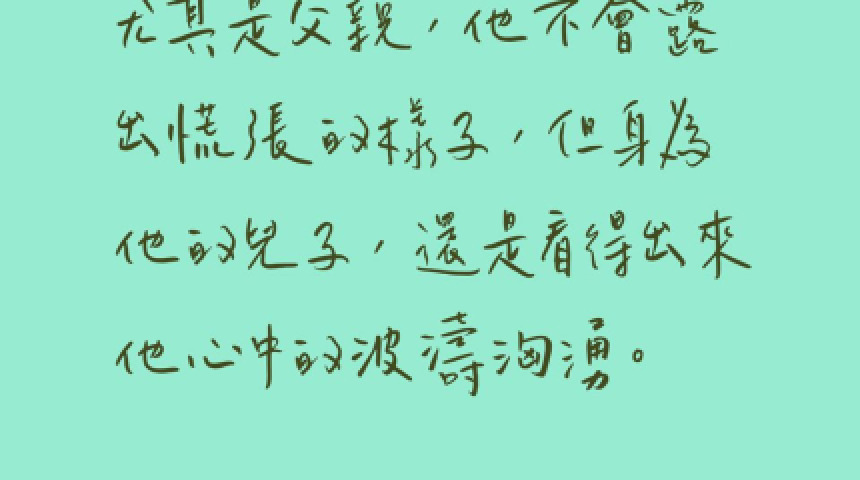 尤其是父親，他不會露
出慌張的樣子，但身為
他的兒子，還是看得出來
他心中的波濤洶湧。